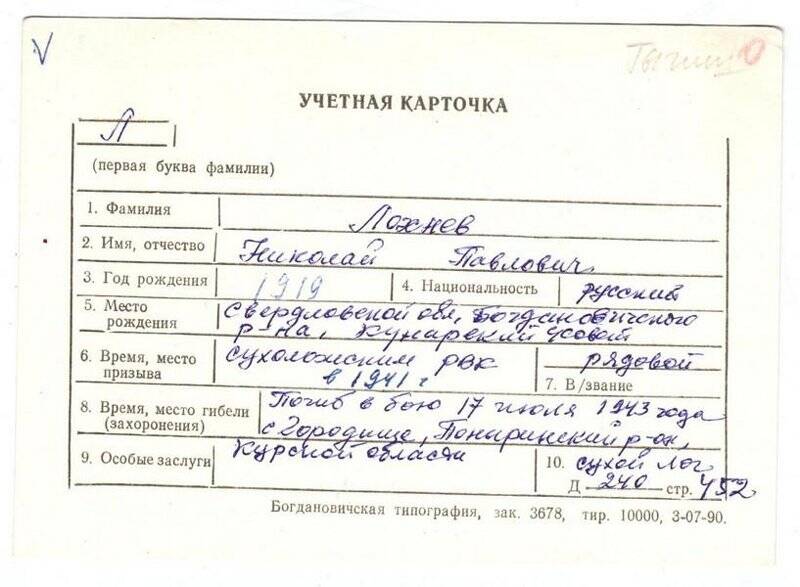 V
О
УЧЕТНАЯ КАРТОЧКА
Л
(первая буква фамилии)
1. Фамилия Лохнев
2. Имя, отчество Николай Павлович
3. Год рождения 1919 4. Национальность русский
5. Место рождения Свердловской обл, Богдановичского
р-на, Кунарский
6. Время, место призыва Сухоложским РВК
в 1941 г
рядовой
7. В/звание
8. Время, место гибели (захоронения) Погиб в бою 17 июля 1943 года
с Городище, Поныринский р-он,
Курской области
9. Особые заслуги
10. Сухой Лог
Д 240 стр. 452
Богдановичская типография, зак. 3678, тир. 10000, 3-07-90.